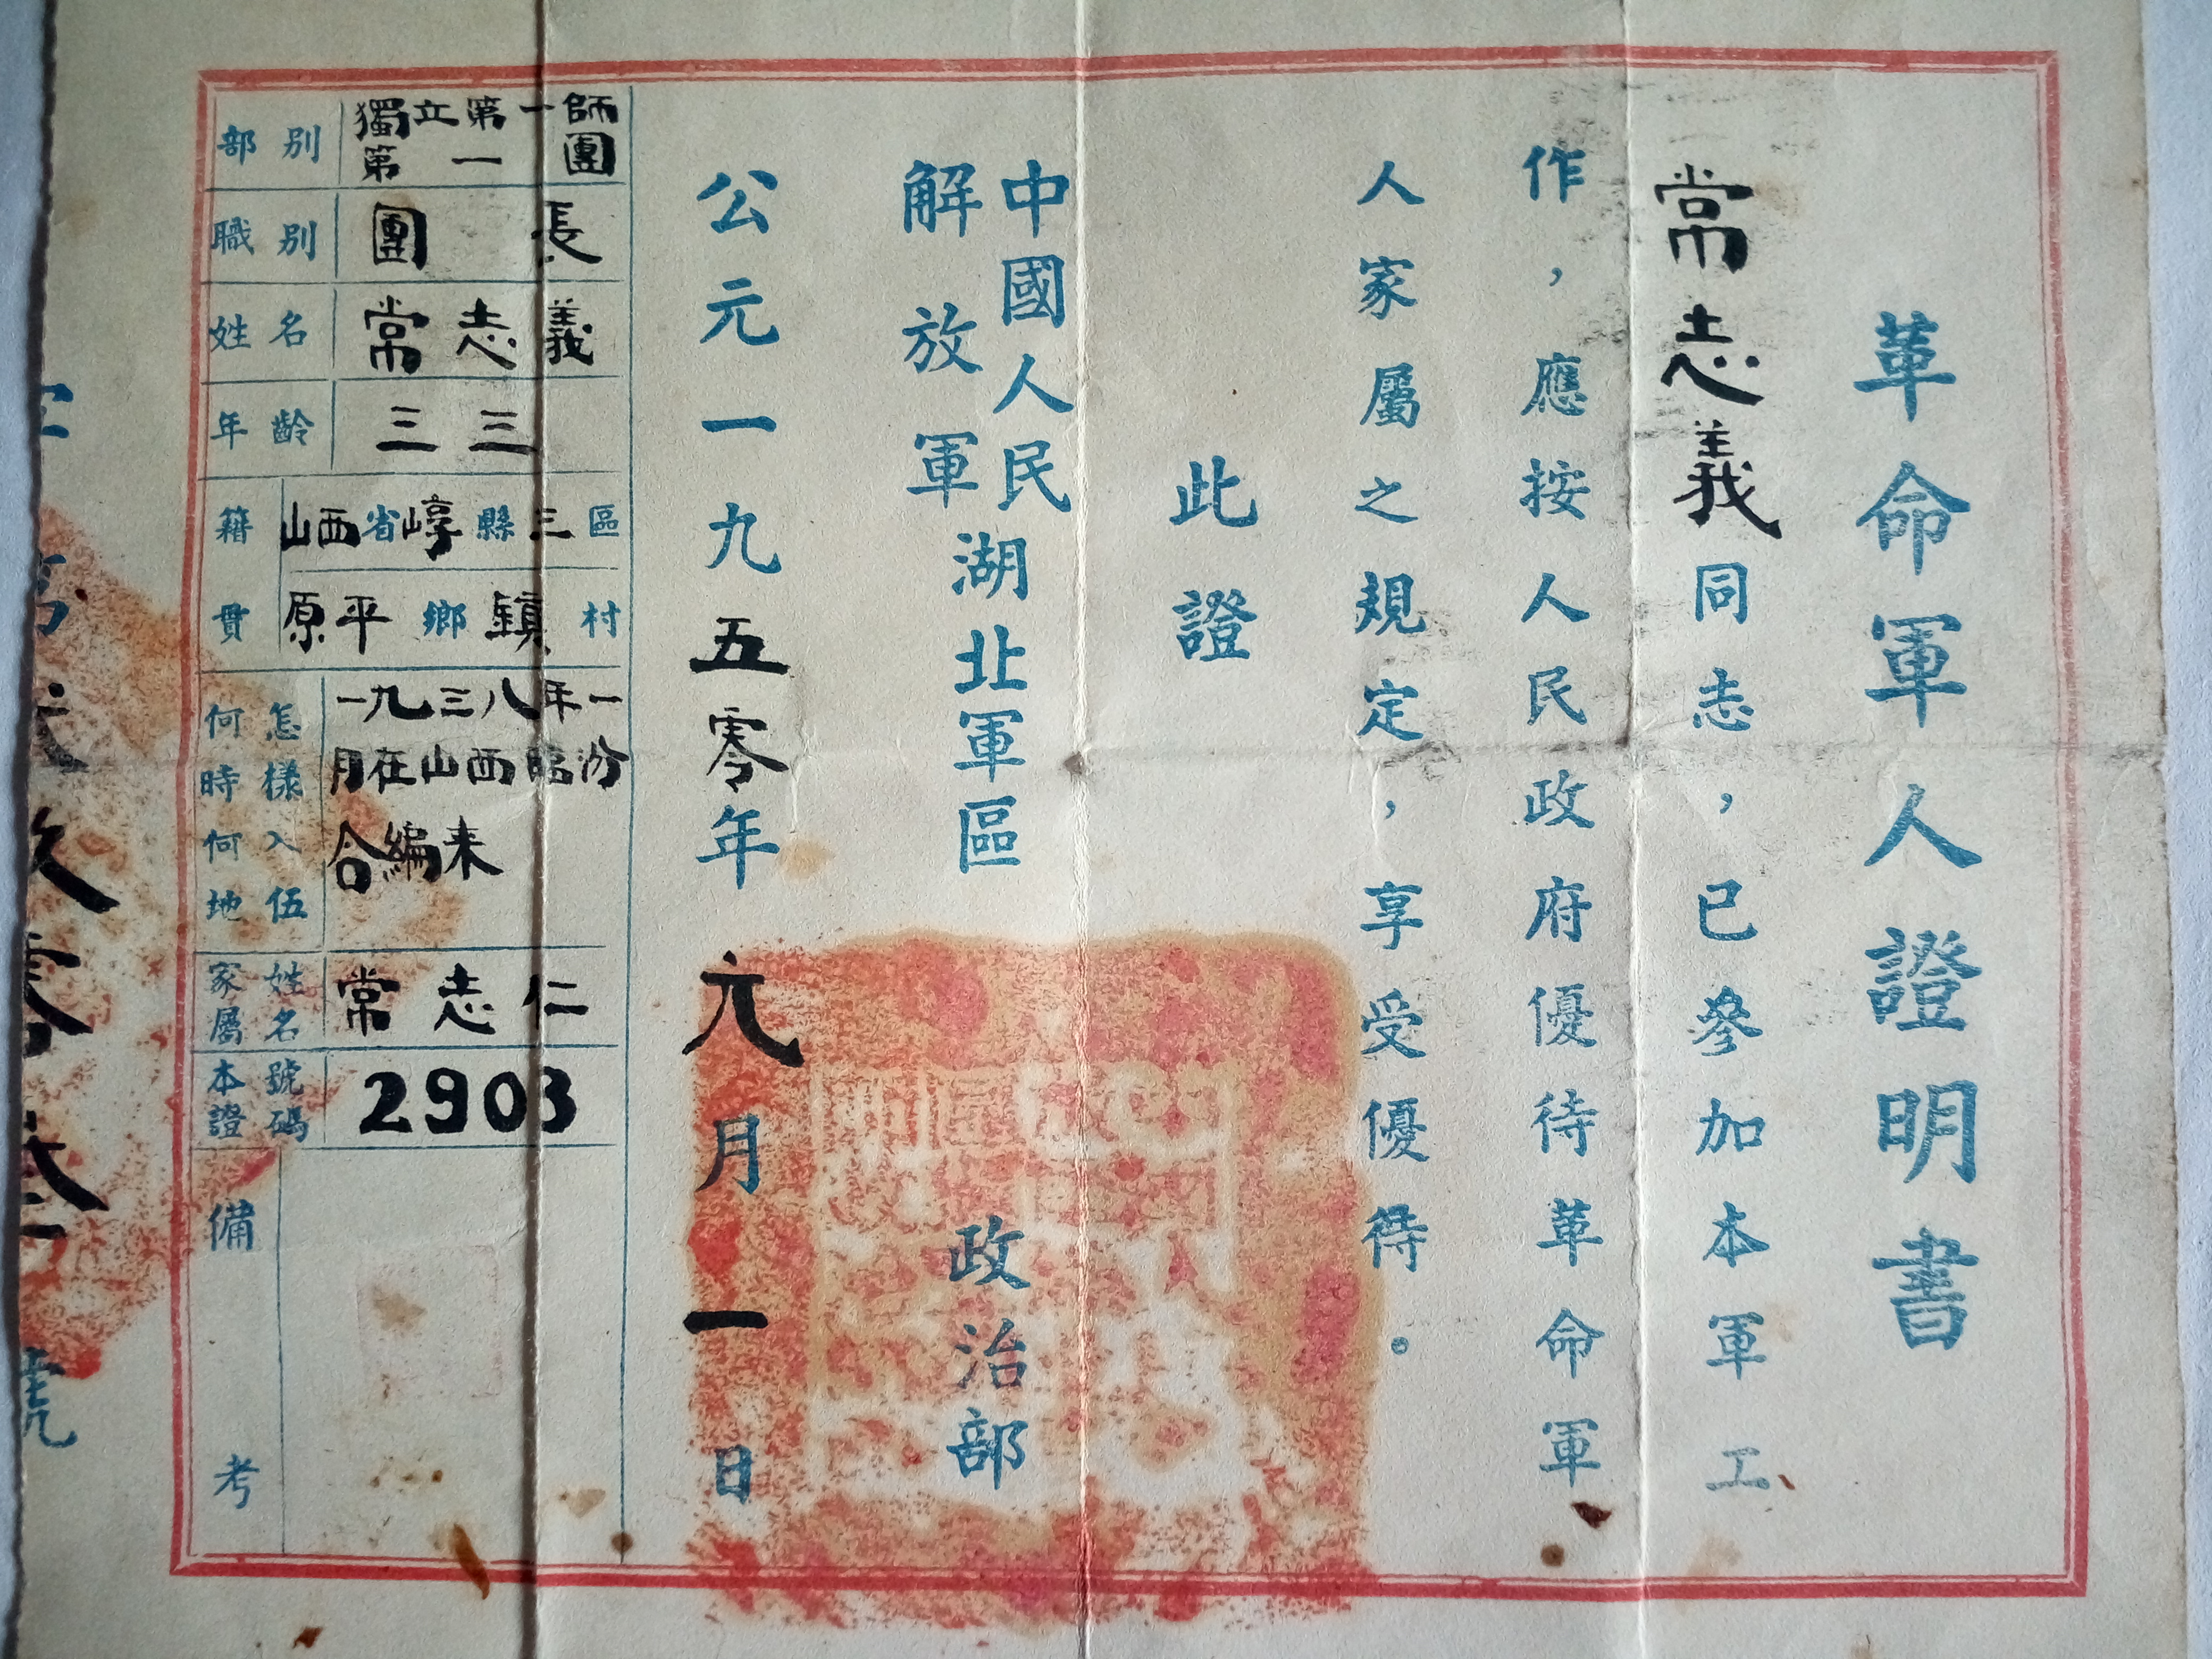 革命軍人證明書
常志義同志，已參加本軍工
作，應按人民政府優待革命軍
人家屬之規定，享受優待。
此證
中國人民
解放軍
湖北軍區
政治部
公元一九五零年元月一日
部別 獨立第一師
第一團
職別 團長
姓名 常志義
年齡 三三
籍貫 山西省崞縣三區
原平鄉鎮村
何時何地怎樣入伍 一九三八年一
月在山西臨汾
合編来
家屬姓名 常志仁
本證號碼 2903
備考
字第貳玖零叁號